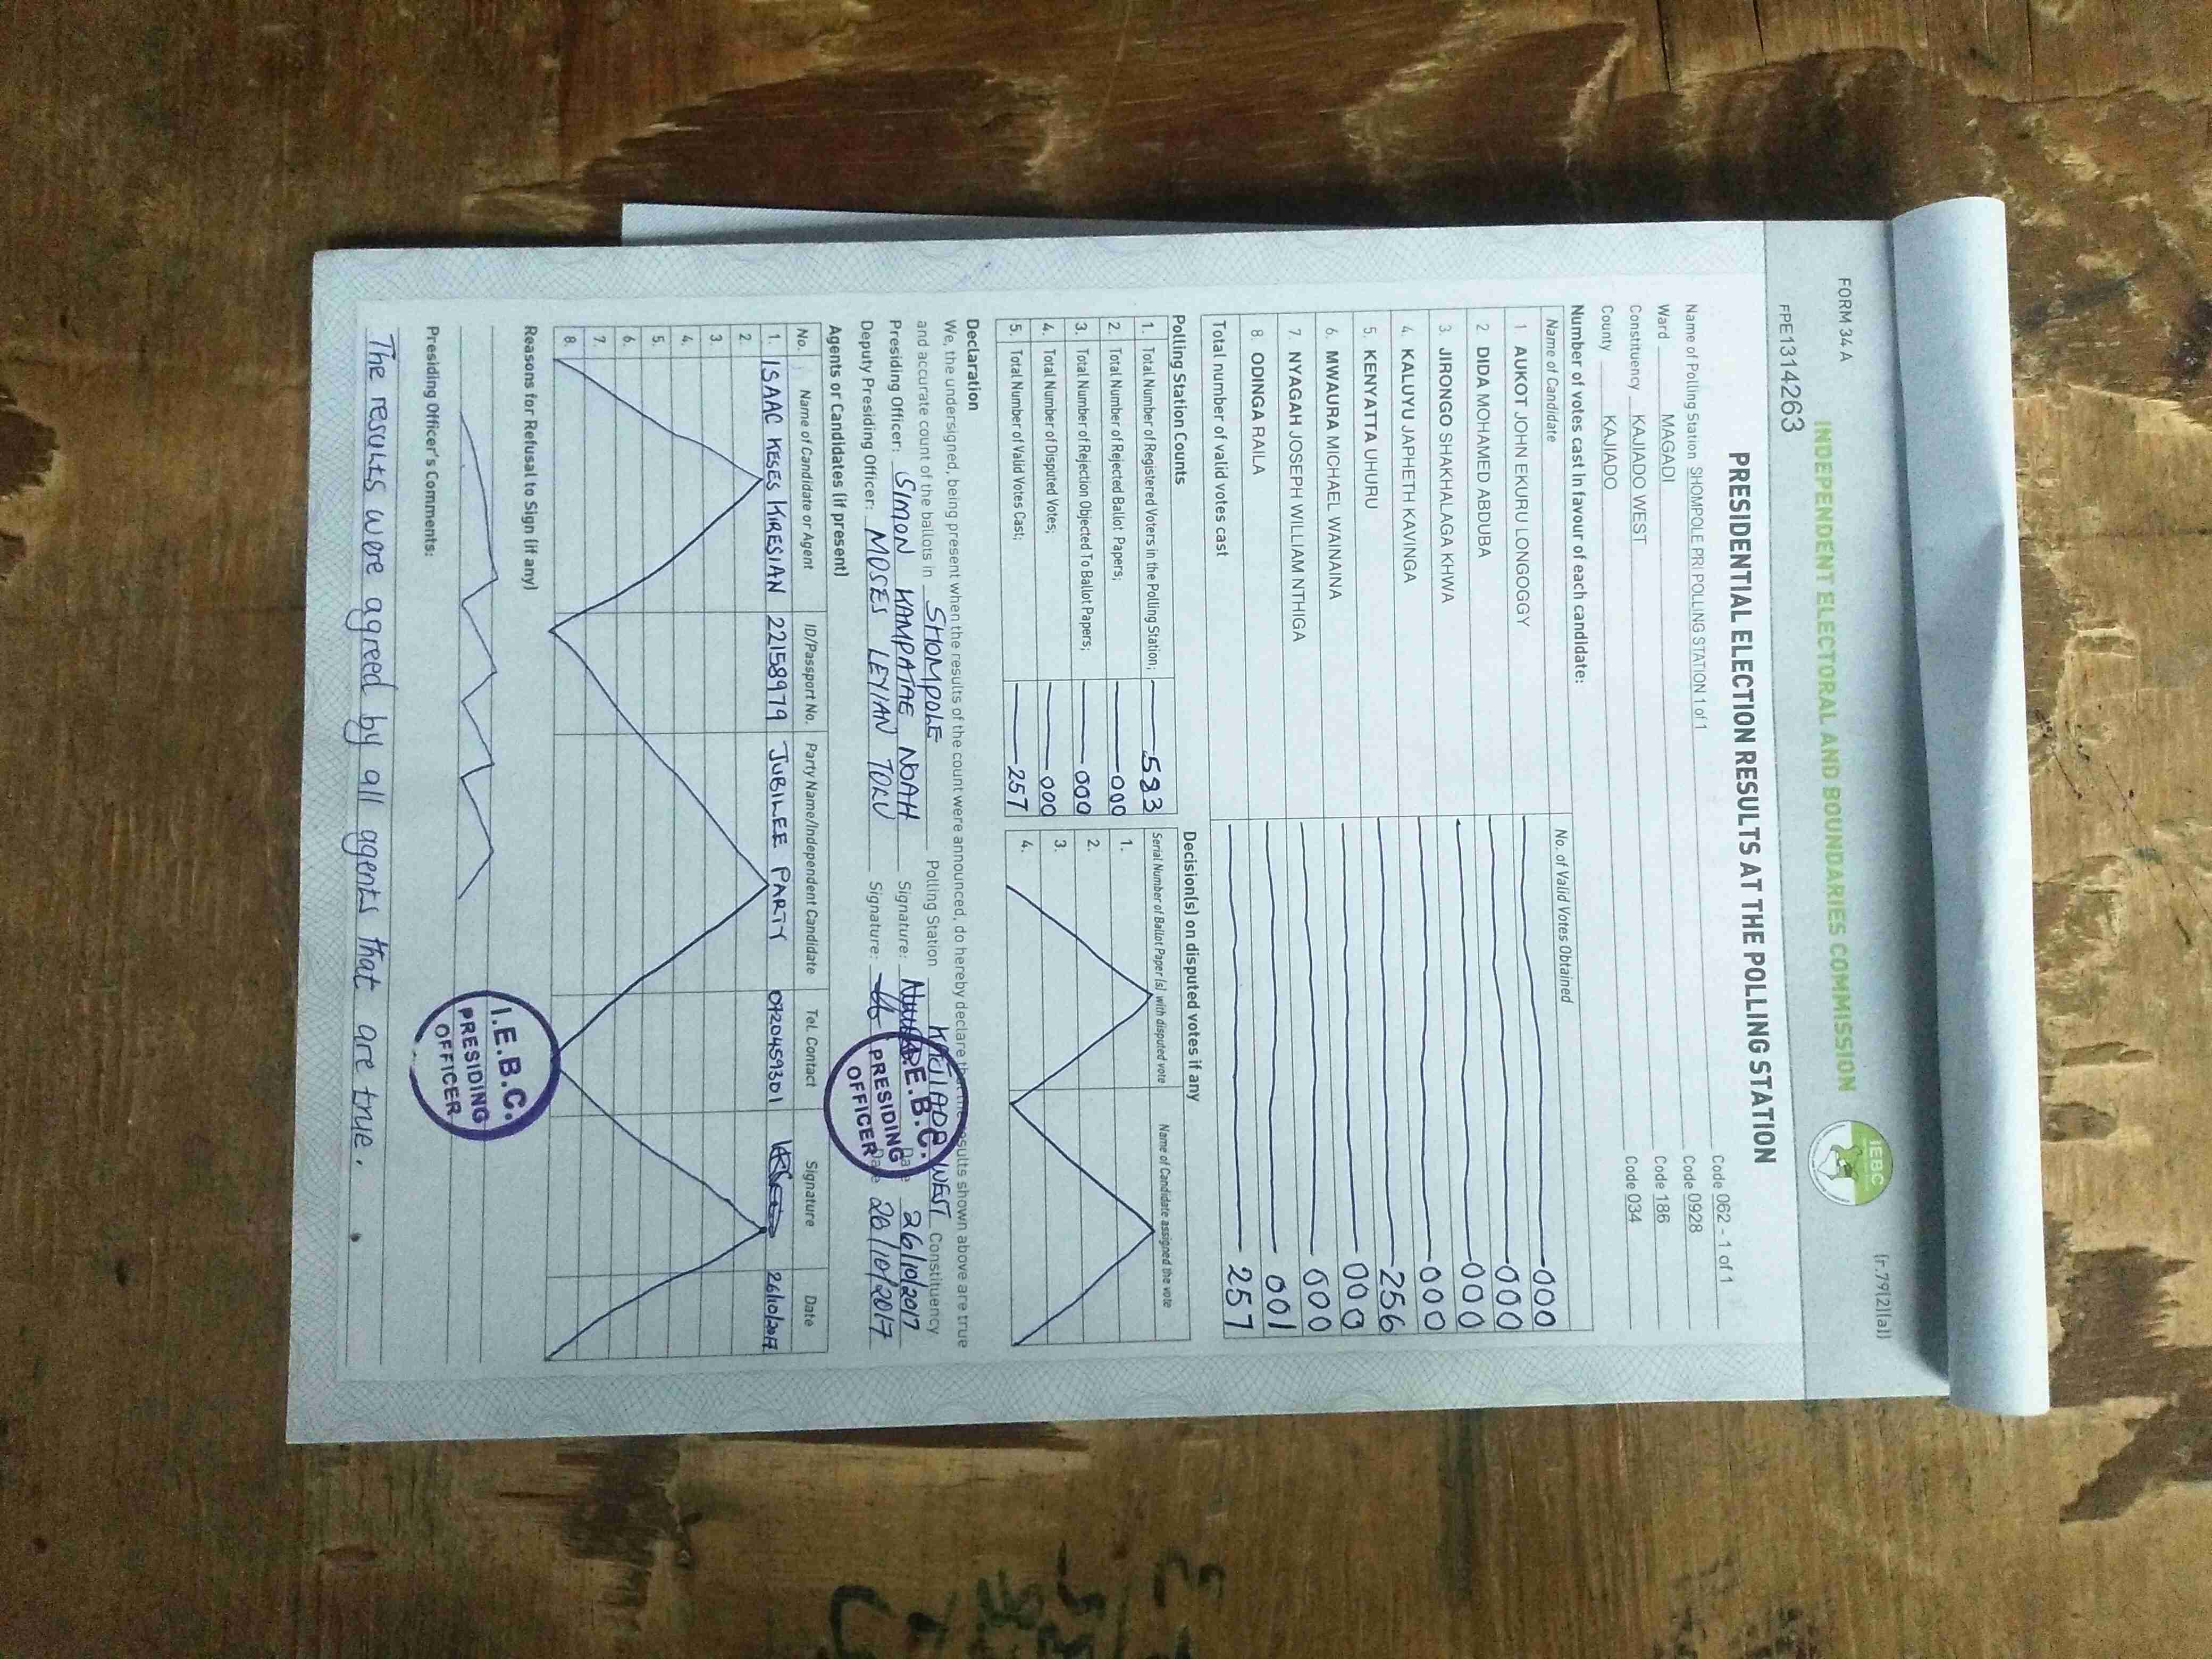 FORM 34 A
(r.79(2)(a))
INDEPENDENT ELECTORAL AND BOUNDARIES COMMISSION
IEBC
FPE1314263
PRESIDENTIAL ELECTION RESULTS AT THE POLLING STATION
Name of Polling Station SHOMPOLE PRI POLLING STATION 1 of 1 Code 062 - 1 of 1
Ward MAGADI Code 0928
Constituency KAJIADO WEST Code 186
County KAJIADO Code 034
Number of votes cast in favour of each candidate:
Name of Candidate No. of Valid Votes Obtained
1 AUKOT JOHN EKURU LONGOGGY 000
2 DIDA MOHAMED ABDUBA 000
3. JIRONGO SHAKHALAGA KHWA 000
4. KALUYU JAPHETH KAVINGA 000
5. KENYATTA UHURU 256
6. MWAURA MICHAEL WAINAINA 000
7. NYAGAH JOSEPH WILLIAM NTHIGA 000
8. ODINGA RAILA 001
Total number of valid votes cast 257
Polling Station Counts
1. Total Number of Registered Voters in the Polling Station; 583
2. Total Number of Rejected Ballot Papers; 000
3. Total Number of Rejection Objected To Ballot Papers; 000
4. Total Number of Disputed Votes; 000
5. Total Number of Valid Votes Cast; 257
Decision(s) on disputed votes if any
Serial Number of Ballot Paper (s) with disputed vote Name of Candidate assigned the vote
1.
2.
3.
4.
Declaration
We, the undersigned, being present when the results of the count were announced, do hereby declare that the results shown above are true
and accurate count of the ballots in SHOMPOLE Polling Station KAJIADO WEST Constituency
Presiding Officer: SIMON KAMPATAE NOAH Signature: Date 26/10/2017
Deputy Presiding Officer: MOSES LEYIAN TOKU Signature: Date 26/10/2017
I.E.B.C.
PRESIDING
OFFICER
Agents or Candidates (if present)
No. Name of Candidate or Agent ID/Passport No. Party Name/Independent Candidate Tel. Contact Signature Date
1. ISAAC KESES KIRESIAN 22158979 JUBILEE PARTY 0920459301 26/10/2017
2
3
4.
5.
6.
7.
8.
Reasons for Refusal to Sign (if any)
I.E.B.C.
PRESIDING
OFFICER
Presiding Officer's Comments:
The results were agreed by all agents that are true.